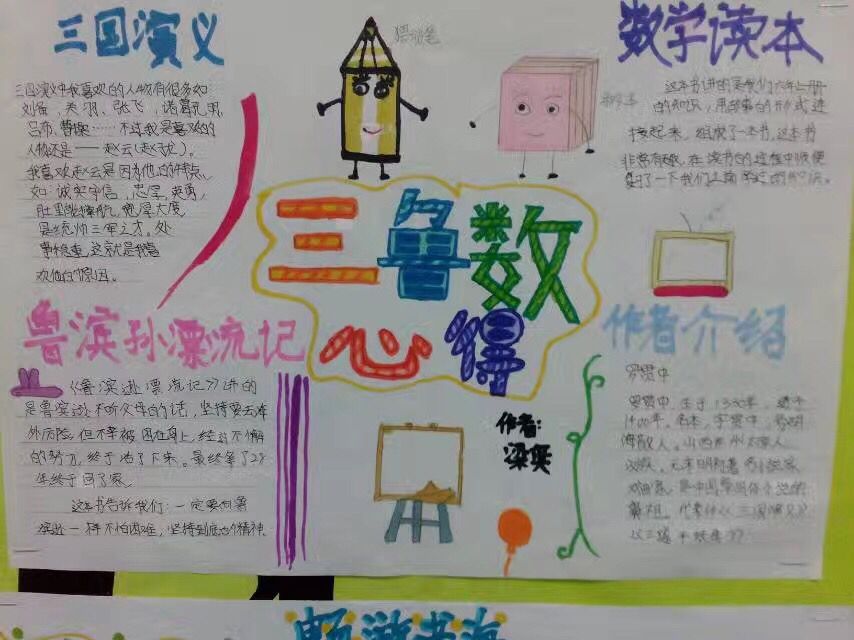 三国演义
三国演义中我喜欢的人物有很多如
刘备，关羽，张飞，诸葛孔明，
吕布，曹操……不过我最喜欢的
人物还是——赵云(赵子龙)。
我喜欢赵云是因为他的
如：诚实守信，忠厚，英勇，
宽厚大度
是统帅三军之才。处
事稳重，这就是我喜
欢他的原因。
数学读本
这本书讲的是我们六年上册
的知识，用故事的形式连
接起来，组成了一本书，这本书
非常有趣，在读书的过程中顺便
复习了一下我们上面学过的知识。
三鲁数
心得
鲁滨孙漂流记
《鲁滨逊漂流记》讲的
是鲁滨逊不听父母的话，坚持要去海
外历险，但不幸被困在岛上，经过不懈
的努力，终于活了下来。最终等了28
年终于回了家。
这本书告诉我们：一定要向鲁
滨逊一样不怕困难，坚持到底的精神。
作者：
梁
作者介绍
罗贯中
罗贯中，生于1330年，
1400年，名本，字贯中，
汉族，元末明初著名小说家，
戏曲家，是中国章回体小说的
鼻祖，代表作《三国演义》
畅游书海